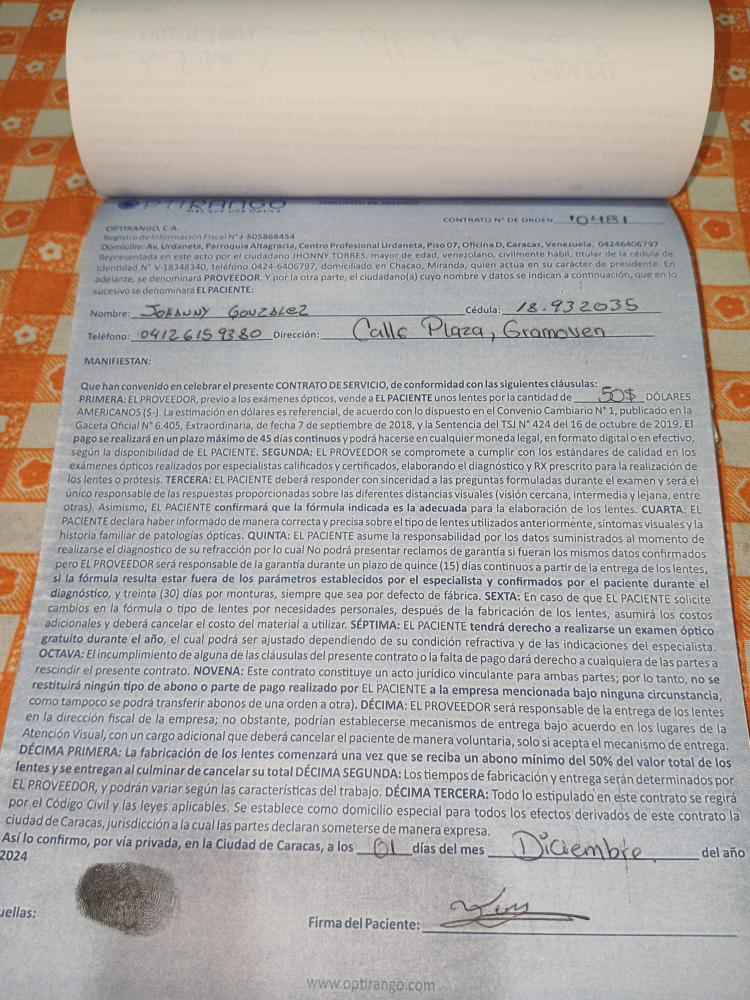 OPTIRANGO
CONTRATO N° DE ORDEN 10481
OPTIRANGO, C.A.
Registro de Información Fiscal N° J-505868454
Domicilio: Av. Urdaneta, Parroquia Altagracia, Centro Profesional Urdaneta, Piso 07, Oficina D, Caracas, Venezuela. 04246406797
Representada en este acto por el ciudadano JHONNY TORRES, mayor de edad, venezolano, civilmente hábil, titular de la cédula de
identidad N° V-18348340, teléfono 0424-6406797, domiciliado en Chacao, Miranda, quien actúa en su carácter de presidente. En
adelante, se denominará PROVEEDOR. Y por la otra parte, el ciudadano(a) cuyo nombre y datos se indican a continuación, que en lo
sucesivo se denominará EL PACIENTE:
Nombre: JOHANNY GONZALEZ Cédula: 18.932035
Teléfono: 04126159380 Dirección: Calle Plaza, Gramoven
MANIFIESTAN:
Que han convenido en celebrar el presente CONTRATO DE SERVICIO, de conformidad con las siguientes cláusulas:
PRIMERA: EL PROVEEDOR, previo a los exámenes ópticos, vende a EL PACIENTE unos lentes por la cantidad de 50$ DÓLARES
AMERICANOS ($-). La estimación en dólares es referencial, de acuerdo con lo dispuesto en el Convenio Cambiario N° 1, publicado en la
Gaceta Oficial N° 6.405, Extraordinaria, de fecha 7 de septiembre de 2018, y la Sentencia del TSJ N° 424 del 16 de octubre de 2019. El
pago se realizará en un plazo máximo de 45 días continuos y podrá hacerse en cualquier moneda legal, en formato digital o en efectivo,
según la disponibilidad de EL PACIENTE. SEGUNDA: EL PROVEEDOR se compromete a cumplir con los estándares de calidad en los
exámenes ópticos realizados por especialistas calificados y certificados, elaborando el diagnóstico y RX prescrito para la realización de
los lentes o prótesis. TERCERA: EL PACIENTE deberá responder con sinceridad a las preguntas formuladas durante el examen y será el
único responsable de las respuestas proporcionadas sobre las diferentes distancias visuales (visión cercana, intermedia y lejana, entre
otras). Asimismo, EL PACIENTE confirmará que la fórmula indicada es la adecuada para la elaboración de los lentes. CUARTA: EL
PACIENTE declara haber informado de manera correcta y precisa sobre el tipo de lentes utilizados anteriormente, síntomas visuales y la
historia familiar de patologías ópticas. QUINTA: EL PACIENTE asume la responsabilidad por los datos suministrados al momento de
realizarse el diagnostico de su refracción por lo cual No podrá presentar reclamos de garantía si fueran los mismos datos confirmados
pero EL PROVEEDOR será responsable de la garantía durante un plazo de quince (15) días continuos a partir de la entrega de los lentes,
si la fórmula resulta estar fuera de los parámetros establecidos por el especialista y confirmados por el paciente durante el
diagnóstico, y treinta (30) días por monturas, siempre que sea por defecto de fábrica. SEXTA: En caso de que EL PACIENTE solicite
cambios en la fórmula o tipo de lentes por necesidades personales, después de la fabricación de los lentes, asumirá los costos
adicionales y deberá cancelar el costo del material a utilizar. SÉPTIMA: EL PACIENTE tendrá derecho a realizarse un examen óptico
gratuito durante el año, el cual podrá ser ajustado dependiendo de su condición refractiva y de las indicaciones del especialista.
OCTAVA: El incumplimiento de alguna de las cláusulas del presente contrato o la falta de pago dará derecho a cualquiera de las partes a
rescindir el presente contrato. NOVENA: Este contrato constituye un acto jurídico vinculante para ambas partes; por lo tanto, no se
restituirá ningún tipo de abono o parte de pago realizado por EL PACIENTE a la empresa mencionada bajo ninguna circunstancia,
como tampoco se podrá transferir abonos de una orden a otra). DÉCIMA: EL PROVEEDOR será responsable de la entrega de los lentes
en la dirección fiscal de la empresa; no obstante, podrían establecerse mecanismos de entrega bajo acuerdo en los lugares de la
Atención Visual, con un cargo adicional que deberá cancelar el paciente de manera voluntaria, solo si acepta el mecanismo de entrega.
DÉCIMA PRIMERA: La fabricación de los lentes comenzará una vez que se reciba un abono mínimo del 50% del valor total de los
lentes y se entregan al culminar de cancelar su total DÉCIMA SEGUNDA: Los tiempos de fabricación y entrega serán determinados por
EL PROVEEDOR, y podrán variar según las características del trabajo. DÉCIMA TERCERA: Todo lo estipulado en este contrato se regirá
por el Código Civil y las leyes aplicables. Se establece como domicilio especial para todos los efectos derivados de este contrato la
ciudad de Caracas, jurisdicción a la cual las partes declaran someterse de manera expresa.
Así lo confirmo, por vía privada, en la Ciudad de Caracas, a los 01 días del mes Diciembre del año
2024
uellas:
Firma del Paciente:
www.optirango.com